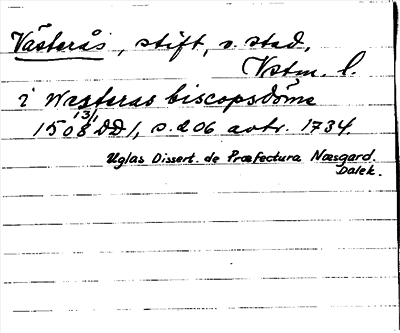 Västerås, stift, o. stad,
Vstm. l.
i Westeras biscopsdöme
1508 13/1 DD1, s. 206 avtr. 1734.
Uglas Dissert. de Præfectura Næsgard.
Dalek.